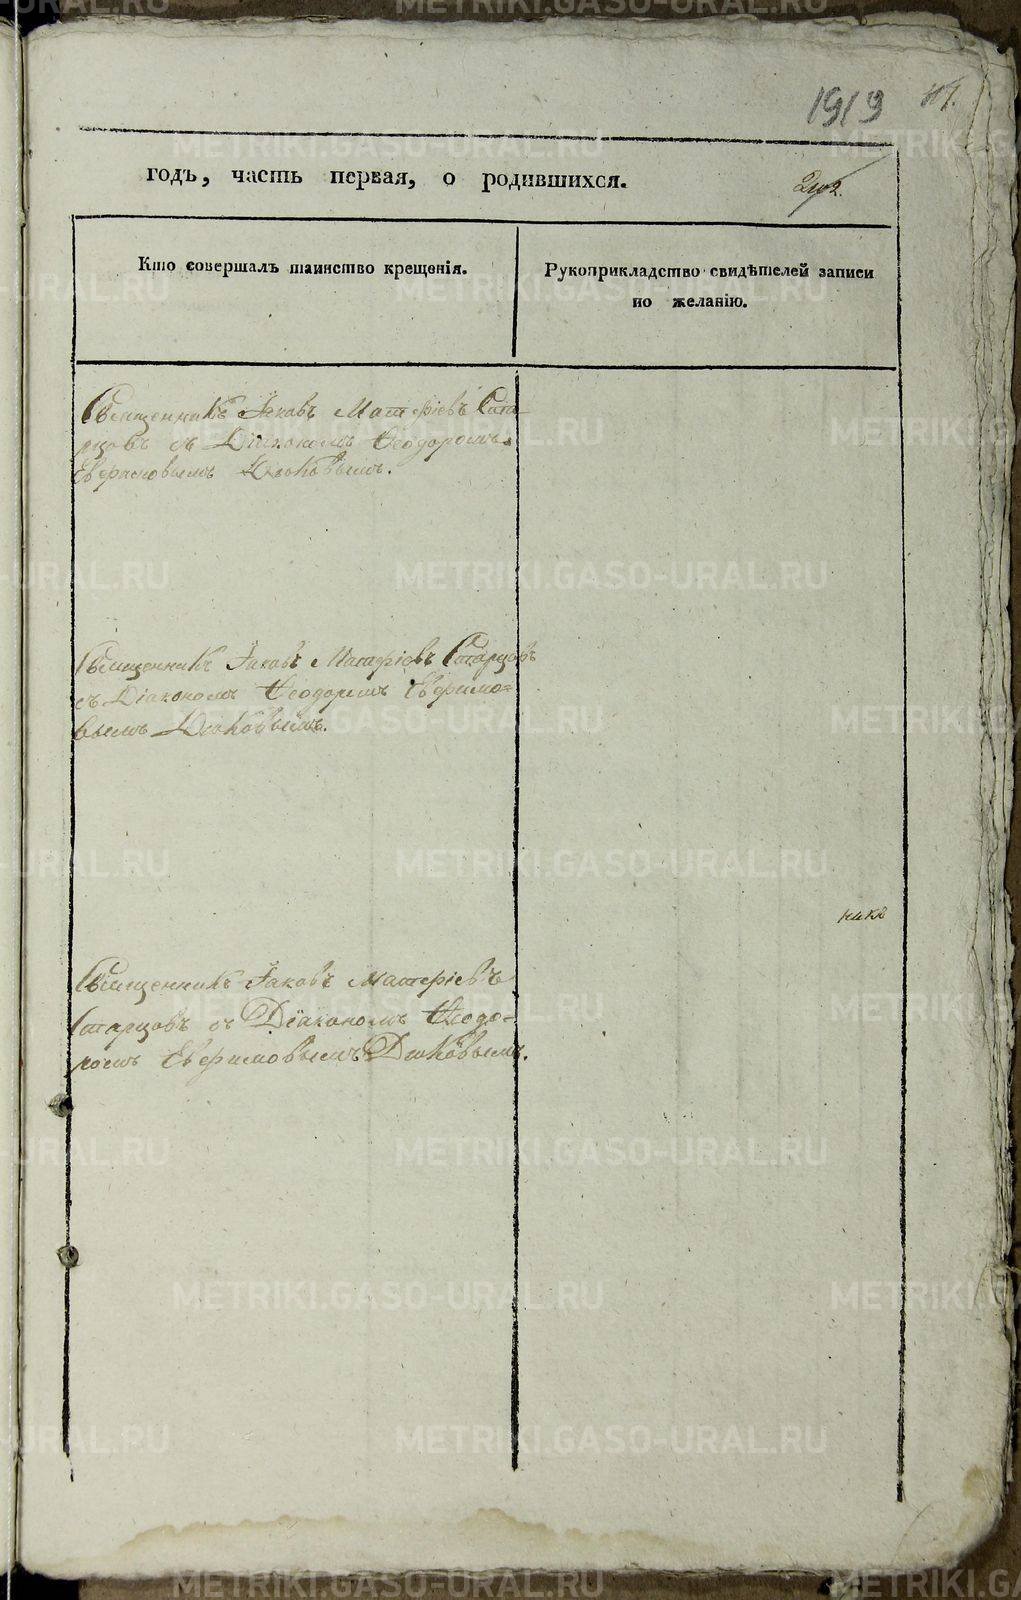 1919
годъ, часть первая, о родившихся.
Кто совершалъ таинство крещенія.
Рукоприкладство свидѣтелей записи
по желанію.
Священникъ Іаковъ Матфіевъ Стар-
цовъ съ Діакономъ Ѳеодоромъ
Евфимовымъ Дюковымъ.
Священникъ Іаковъ Матфіевъ Старцовъ
съ Діакономъ Ѳеодоромъ Евфимо=
вымъ Дюковымъ.
Священникъ Іаковъ Матфіевъ
Старцовъ съ Діакономъ Ѳеодо=
ромъ Евфимовымъ Дюковымъ.
METRIKI.GASO-URAL.RU